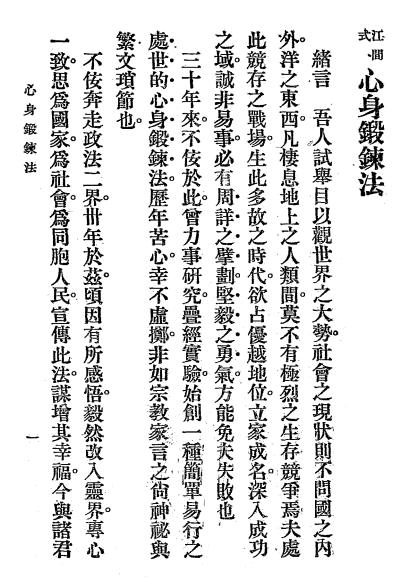 江間式 心身鍛鍊法
緒言　吾人試舉目以觀世界之大勢。社會之現狀則不問國之內
外。洋之東西。凡棲息地上之人類間。莫不有極烈之生存競爭焉。夫處
此競存之戰場。生此多故之時代。欲占優越地位。立家成名。深入成功
之域。誠非易事。必有周詳之擘劃。堅毅之勇氣。方能免夫失敗也
三十年來。不佞於此。曾力事研究。疊經實驗。始創一種簡單易行之
處世的心身鍛鍊法。歷年苦心。幸不虛擲。非如宗教家言之尙神祕與
繁文瑣節也。
不佞奔走政法二界。卅年於茲。頃因有所感悟。毅然改入靈界。專心
一致。思爲國家。爲社會。爲同胞人民。宣傳此法。謀增其幸福。今與諸君
心身鍛鍊法
一